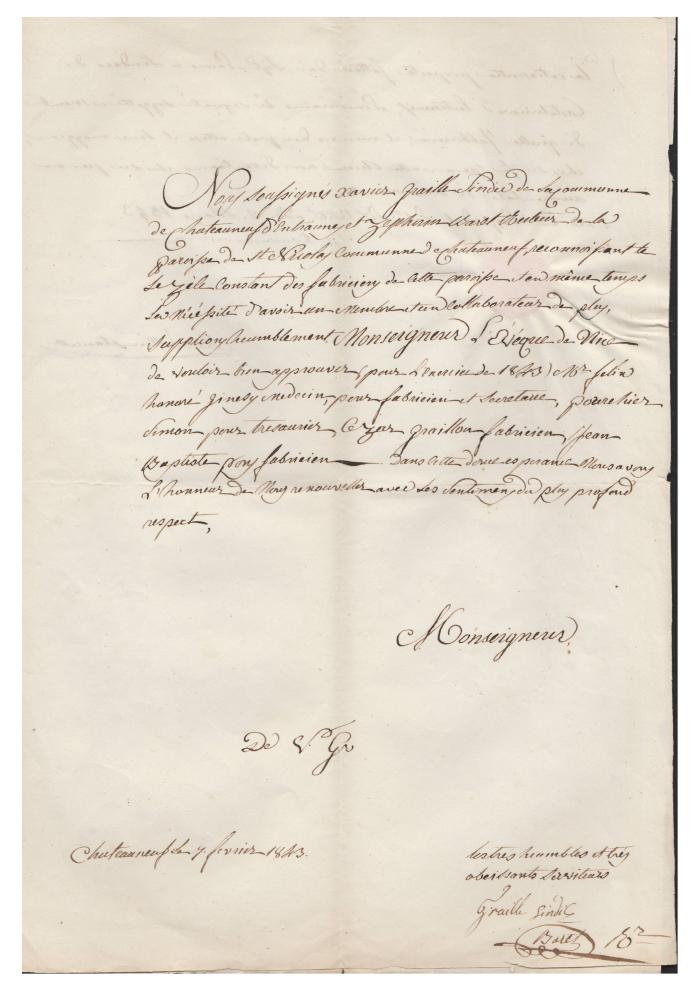 Nous soussignés Xavier graille Sindic de la Commune
de Chateauneuf d'Entraunes et Zephirin Baret Recteur de la
paroisse de St Nicolas Commune de Chateauneuf, reconnoissant le
le zèle Constant des fabriciens de Cette paroisse et en même temps
la Nécéssité d'avoir un Membre et un Collaborateur de plus,
Supplions humblement Monseigneur L'Evêque de Nice
de vouloir bien approuver, pour L'exercice de 1843 Mr felix
honoré ginesy medecin, pour fabricien et Secretaire,
Simon pour tresaurier, Cezar graillon fabricien, jean
Baptiste pons fabricien — Dans Cette douce esperance Nous avons
L'honneur de Nous renouveller avec les Sentimens du plus profond
respect,
Monseigneur
De V. Gr
Chateauneuf le 7 fevrier 1843.
les tres humbles et tres
obeissants Serviteurs
Graille Sindic
Baret Rr